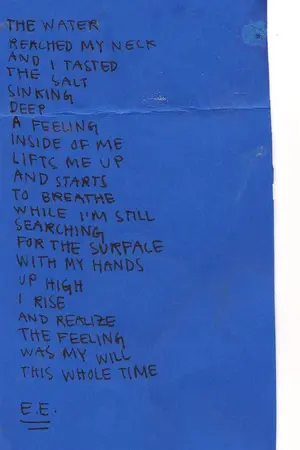 THE WATER
REACHED MY NECK
AND I TASTED
THE SALT
SINKING
DEEP
A FEELING
INSIDE OF ME
LIFTS ME UP
AND STARTS
TO BREATHE
WHILE I'M STILL
SEARCHING
FOR THE SURFACE
WITH MY HANDS
UP HIGH
I RISE
AND REALIZE
THE FEELING
WAS MY WILL
THIS WHOLE TIME
E.E.